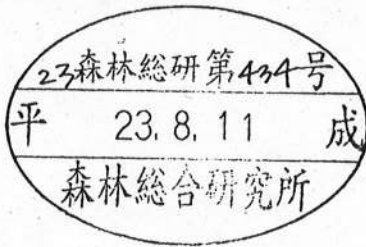 23森林総研第434号
平 23.8.11 成
森林総合研究所